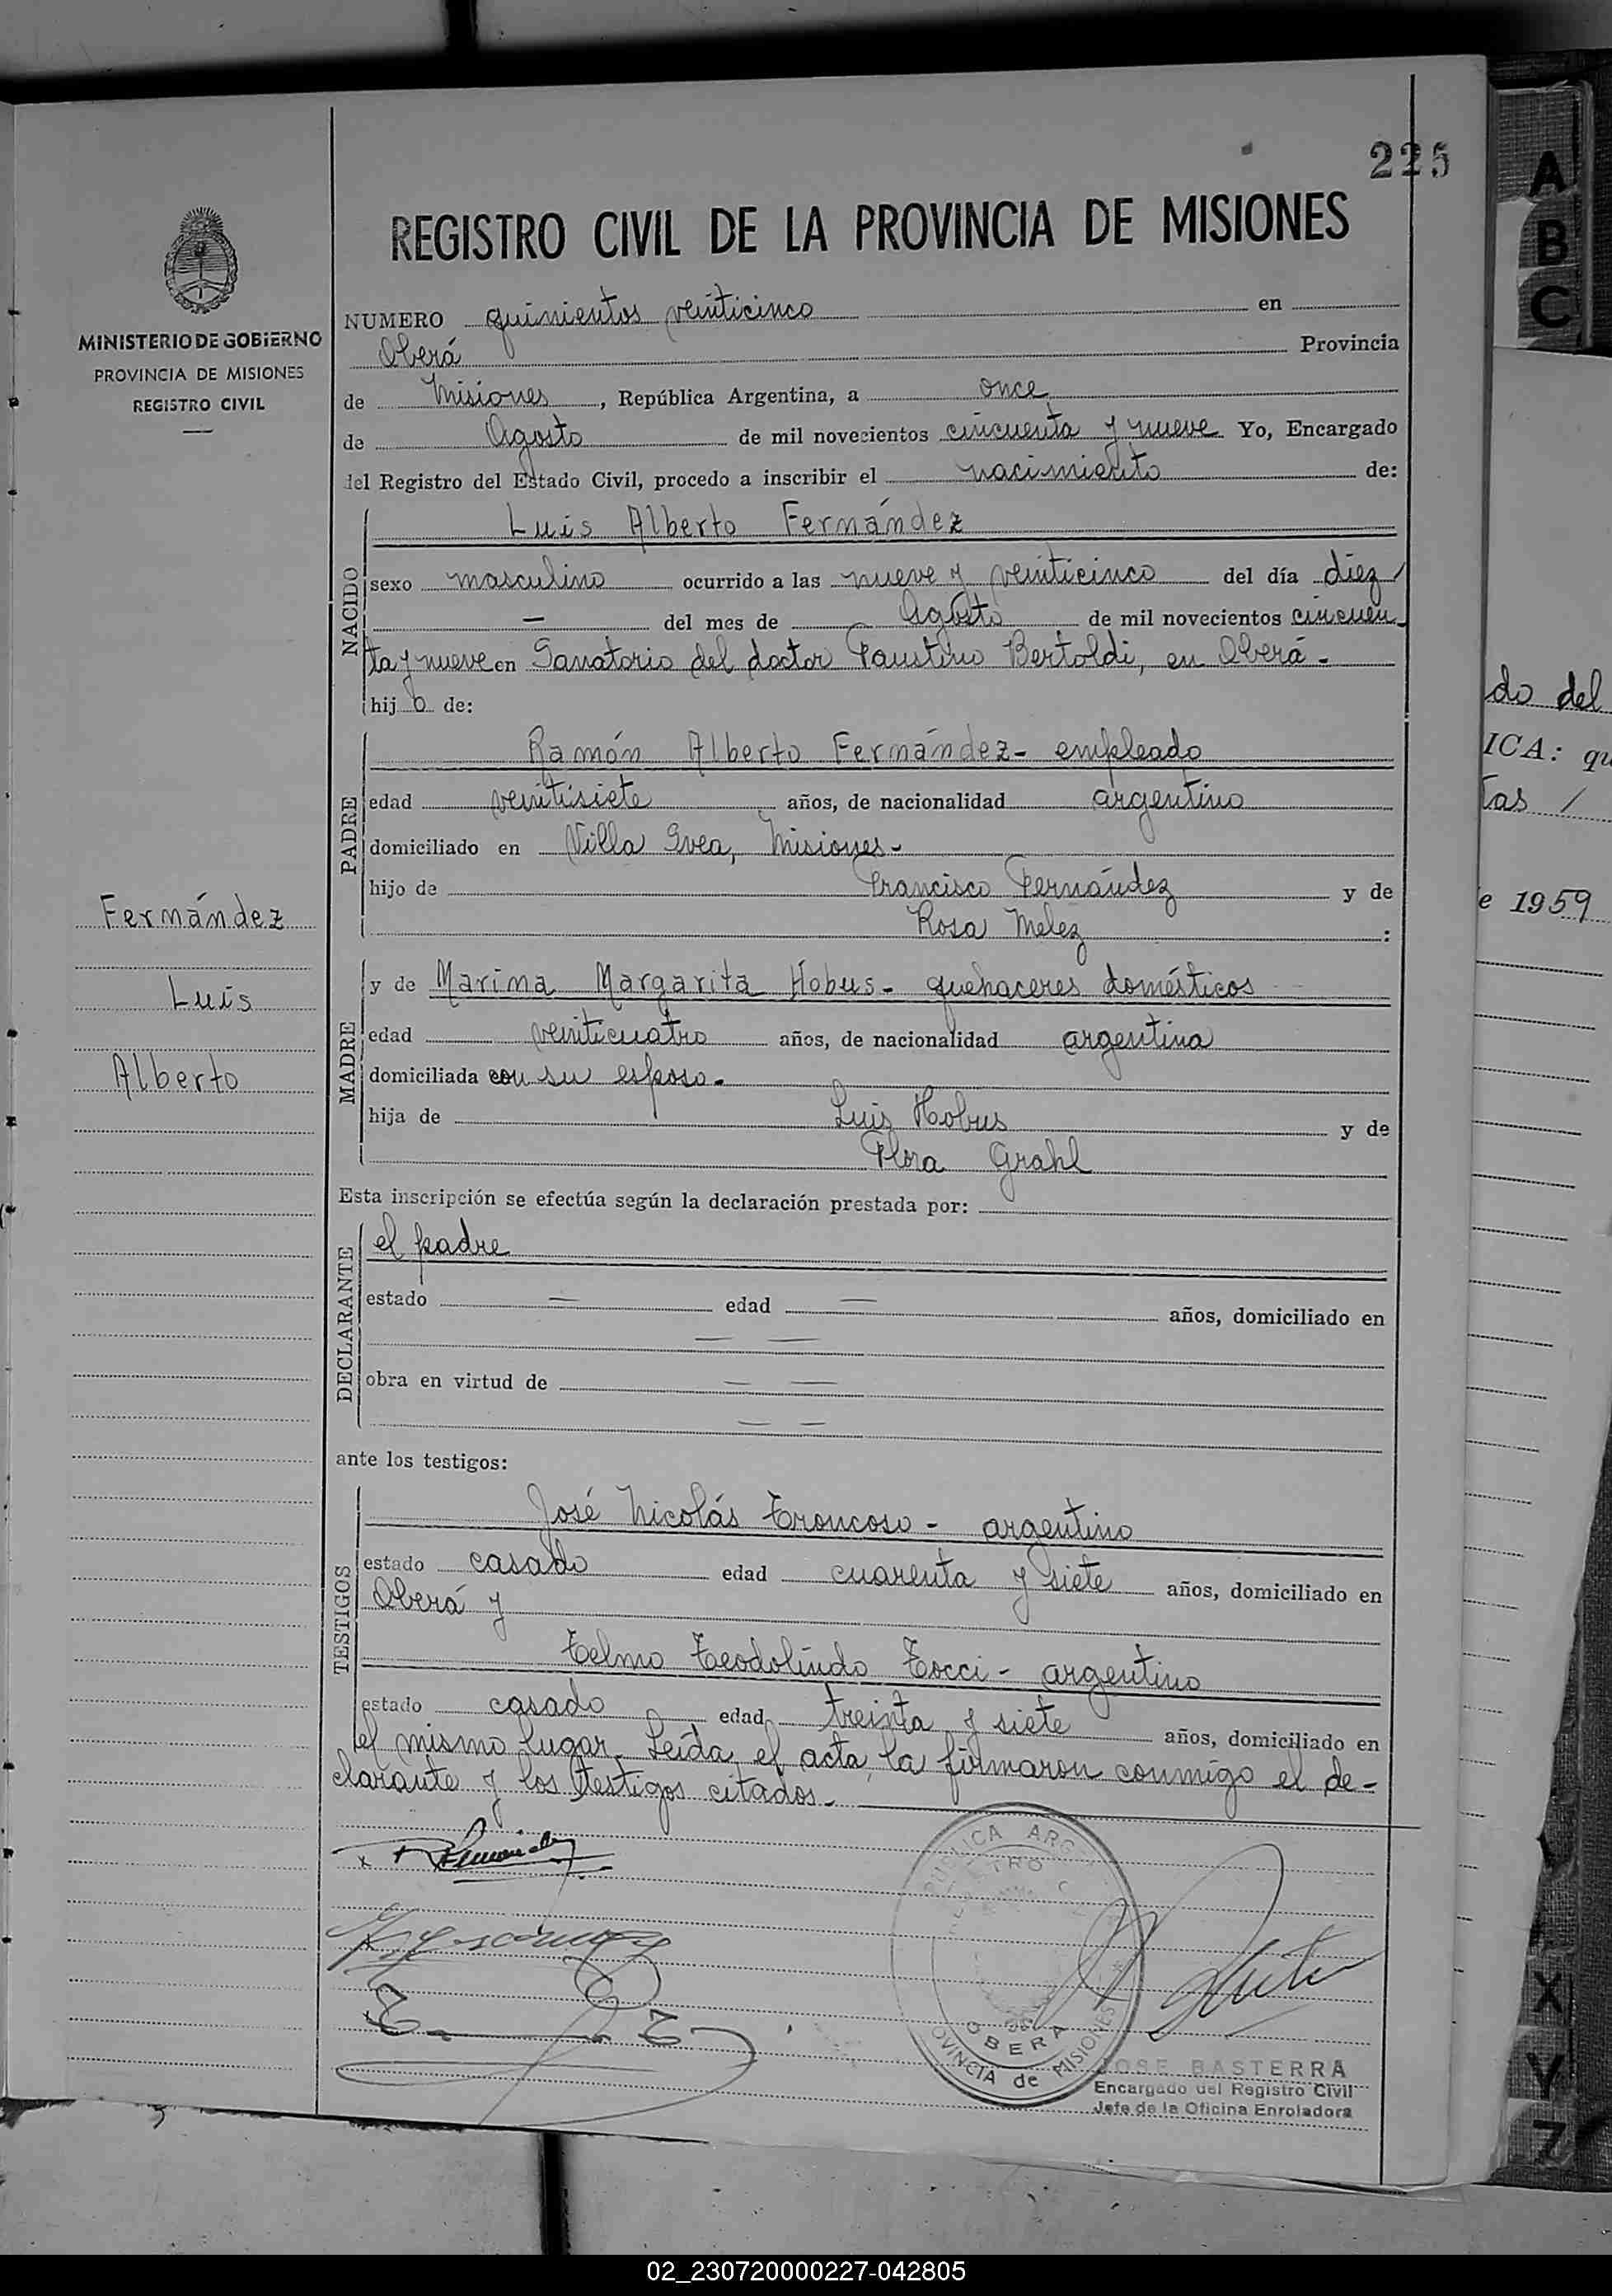 225
REGISTRO CIVIL DE LA PROVINCIA DE MISIONES
MINISTERIO DE GOBIERNO
PROVINCIA DE MISIONES
REGISTRO CIVIL
NUMERO quinientos veinticinco en
Oberá Provincia
de Misiones, República Argentina, a once
de Agosto de mil novecientos cincuenta y nueve Yo, Encargado
del Registro del Estado Civil, procedo a inscribir el nacimiento de:
NACIDO
Luis Alberto Fernández
sexo masculino ocurrido a las nueve y veinticinco del día diez
— del mes de Agosto de mil novecientos cincuen
ta y nueve en Sanatorio del doctor Faustino Bertoldi, en Oberá-
hijo de:
PADRE
Ramón Alberto Fernández- empleado
edad veintisiete años, de nacionalidad argentino
domiciliado en Villa Svea, Misiones-
hijo de Francisco Fernández y de
Rosa Melez :
MADRE
y de Marina Margarita Hobus- quehaceres domésticos
edad veinticuatro años, de nacionalidad argentina
domiciliada con su esposo-
hija de Luis Hobus y de
Flora Grahl
Fernández
Luis
Alberto
Esta inscripción se efectúa según la declaración prestada por:
DECLARANTE
el padre
estado — edad — años, domiciliado en
— —
obra en virtud de — —
— —
ante los testigos:
TESTIGOS
José Nicolás Troncoso - argentino
estado casado edad cuarenta y siete años, domiciliado en
Oberá y
Telmo Teodolindo Tocci- argentino
estado casado edad treinta y siete años, domiciliado en
el mismo lugar. Leída el acta, la firmaron conmigo el de-
clarante y los testigos citados.-
OBERA
PROVINCIA de MISIONES
JOSE BASTERRA
Encargado del Registro Civil
Jefe de la Oficina Enroladora
A
B
C
do del
ICA: qu
tas /
e 1959
X
Y
Z
02_230720000227-042805